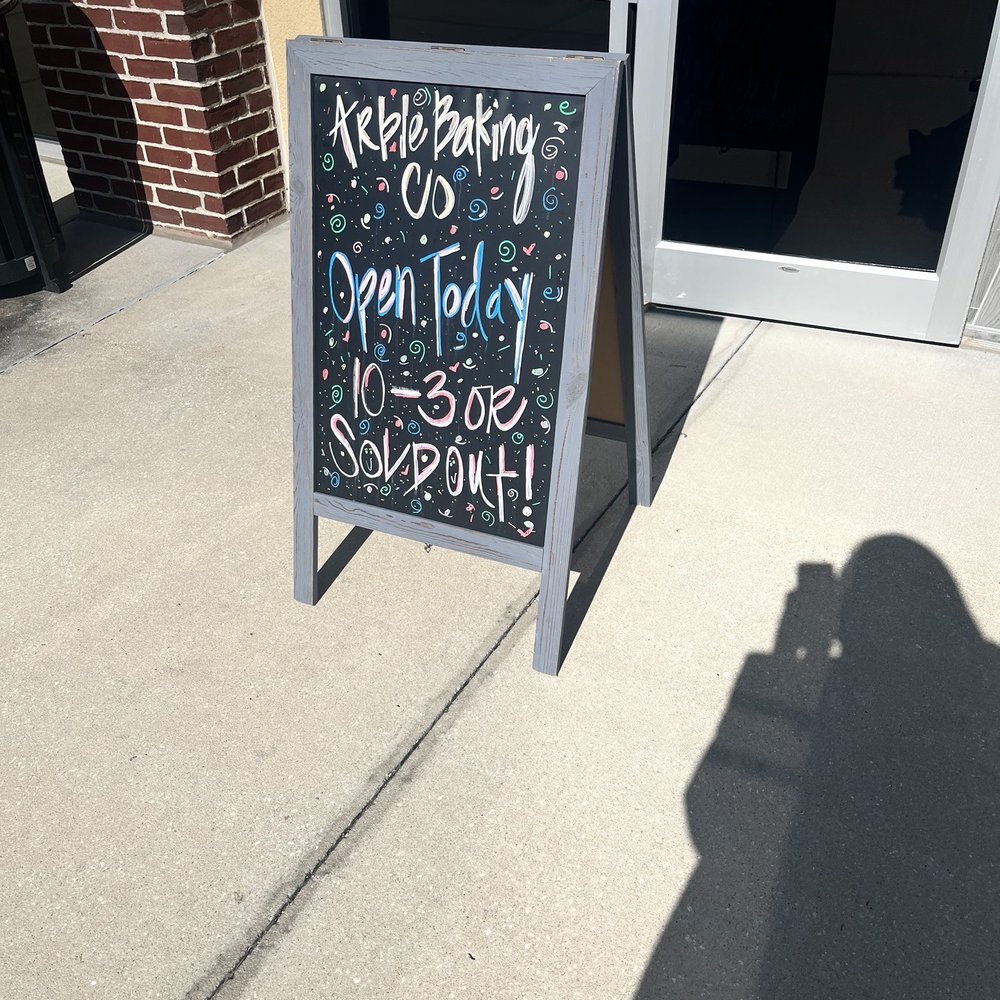 Arble Baking
Co
Open Today
10-3 or
Sold out!